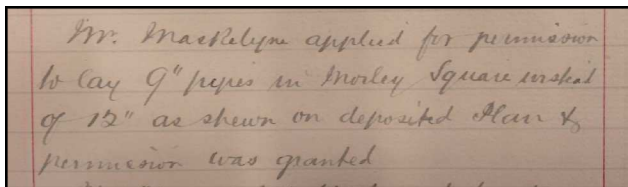 Mr. Maskelyne applied for permission
to lay 9" pipes in Morley Square instead
of 12" as shewn on deposited Plan &
permission was granted